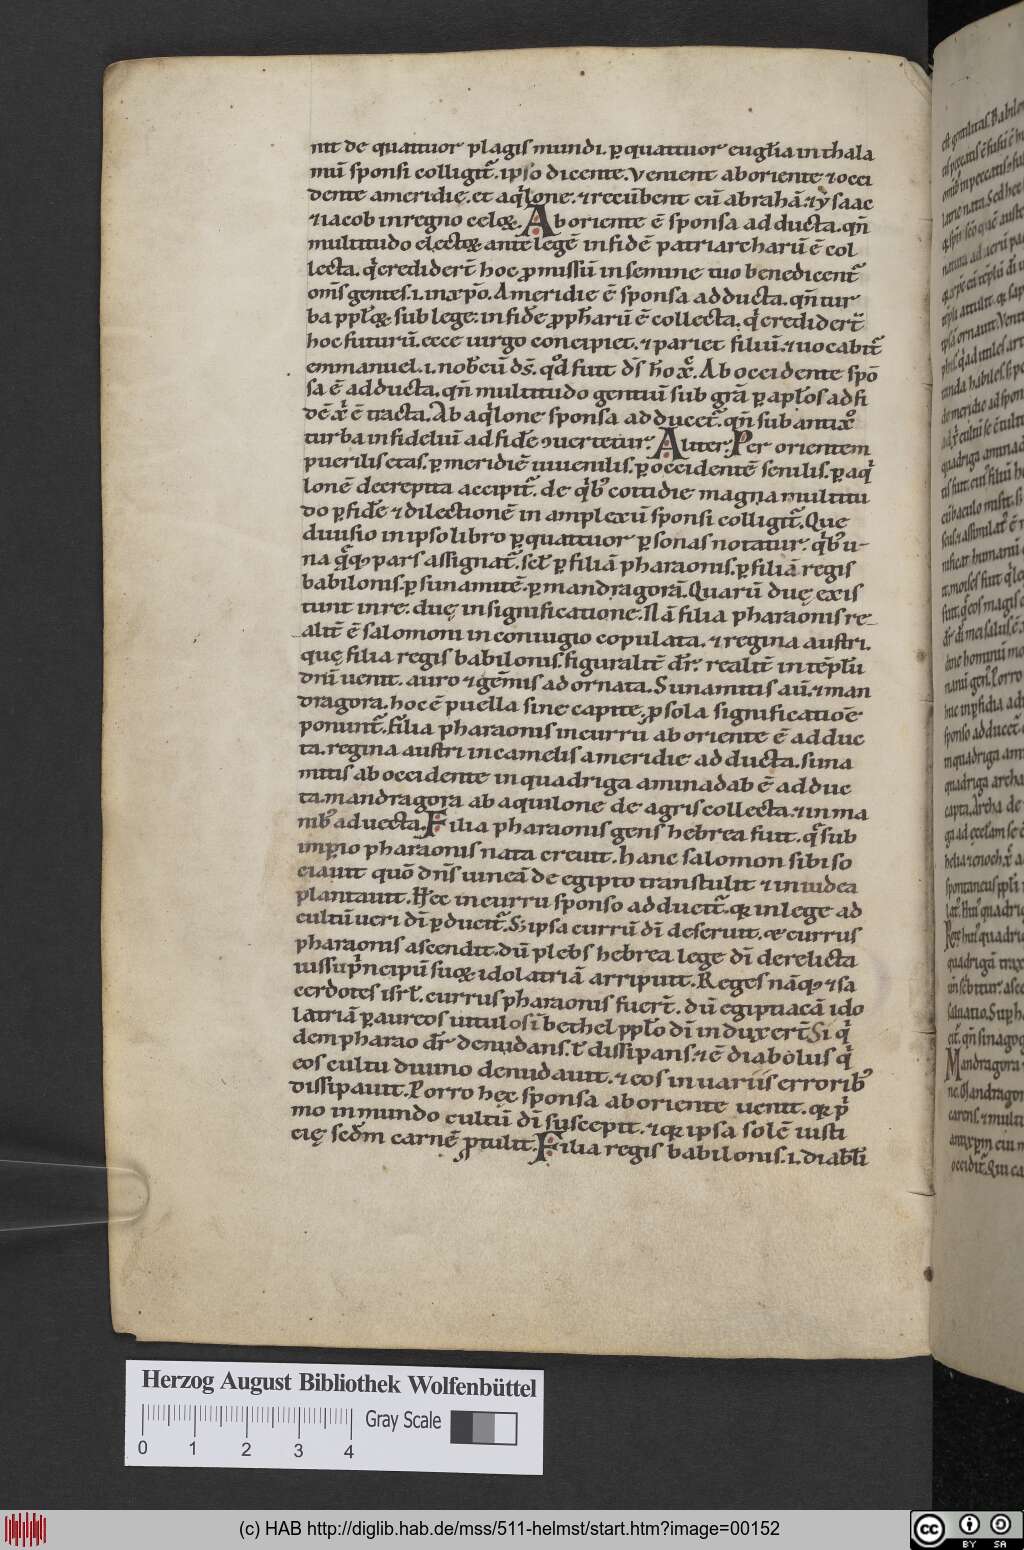 nit de quattuor plagis mundi. ꝑ quattuor eugl̄ia in thala
mū sponsi colligit᷑. ipso dicente. Venient ab oriente ⁊ occi
dente a meridie. et aql̄one. ⁊ recūbent cū abrahā. ⁊ ysaac
⁊ iacob in regno celoꝝ. Ab oriente ē sponsa adducta. qn̄
multitudo electoꝝ ante legē in fidē patriarcharū ē col
lecta. q̇ credidert̄ hoc ꝓmissū in semine tuo benedicent᷑
om̄s gentes. i. in xp̄o. A meridie ē sponsa adducta. qn̄ tur
ba ppl̄oꝝ sub lege. in fide ꝓph̄arū ē collecta. q̇ credidert̄
hoc futurū. ecce uirgo concipiet. ⁊ pariet filiū. ⁊ uocabit᷑
emmanuel. i. nob̄cū ds̄. qd̄ fuit ds̄ h̄o xp̄c. Ab occidente spō
sa ē adducta. qn̄ multitudo gentiū sub grā ꝑ apl̄os ad fi
dē xp̄i ē tracta. Ab aql̄one sponsa adducet᷑. qn̄ sub antixp̄o
turba infideliū ad fidē ꝯuertetur. Aliter. Per orientem
puerilis etas. ꝑ meridiē iuuenilis. ꝑ occidentē senilis. ꝑ aq̇
lonē decrepita accipit᷑. de q̇b᷒ cottidie magna multitu
do ꝑ fidē ⁊ dilectionē in amplexū sponsi colligit᷑. Que
diuisio in ipso libro ꝑ quattuor ꝑsonas notatur. q̇b᷒ u-
na q̄q᷒ pars assignat᷑. scl̄ ꝑ filiā pharaonis. ꝑ filiā regis
babilonis. ꝑ sunamitē. ꝑ mandragorā. Quarū duę exis
tunt in re. duę in significatione. Nā filia pharaonis re-
alit̄ ē salomoni in coniugio copulata. ⁊ regina austri.
quę filia regis babilonis. figuralit̄ dr̄. realit̄ in tēplū
dn̄i uenit. auro ⁊ gēmis adornata. Sunamitis aū. ⁊ man
dragora. hoc ē puella sine capite. ꝓ sola significatiōe
ponunt᷑. Filia pharaonis in curru ab oriente ē adduc
ta. regina austri in camelis a meridie adducta. suna
mitis ab occidente in quadriga aminadab ē adduc
ta. mandragora ab aquilone de agris collecta. ⁊ in ma
nib᷒ aduecta. Filia pharaonis gens hebrea fuit. q̄ sub
imꝑio pharaonis nata creuit. hanc salomon sibi so
ciauit quō dn̄s uineā de egipto transtulit ⁊ in iudea
plantauit. Hec in curru sponso adducit᷑. qꝛ in lege ad
cultū ueri dī ꝑducit᷑. S; ipsa currū dī deseruit. & currus
pharaonis ascendit. dū plebs hebrea lege dī derelicta
iussu pr̄ncipū suoꝝ idolatriā arripuit. Reges nāq᷒ ⁊ sa
cerdotes isrl̄. currus pharaonis fuert̄. dū egiptiacā ido
latriā ꝑ aureos uitulos ī bethel ppl̄o dī induxert̄. Si q̇
dem pharao dr̄ denudans. l̄ dissipans. ⁊ ē diabolus q̇
eos cultu diuino denudauit. ⁊ eos in uariis errorib᷒
dissipauit. Porro hec sponsa ab oriente uenit. qꝛ pr̄
mo in mundo cultū dī suscepit. ⁊ qꝛ ipsa solē iusti
cię scdm̄ carnē ꝓtulit. Filia regis babilonis. i. diabl̄i
Herzog August Bibliothek Wolfenbüttel
Gray Scale
0 1 2 3 4
(c) HAB http://diglib.hab.de/mss/511-helmst/start.htm?image=00152
cc BY SA